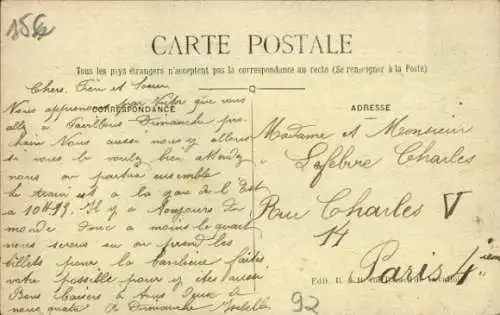 156
CARTE POSTALE
Tous les pays étrangers n'acceptent pas la correspondance au recto (Se renseigner à la Poste)
Chers Frère et Soeur
CORRESPONDANCE
Nous apprenons par Victor que vous
allez à Dimanche pro-
chain Nous aussi nous y allons
si vous le voulez bien attendez
nous on partira ensemble
le train est à la gare de l'Est
à 10H. Il y a toujours du
monde donc à moins le quart
nous serons où on prend les
billets pour la banlieue faites
votre possible pour y être aussi
Bons baisers à tous deux de
nous quatre à Dimanche Isabelle
ADRESSE
Madame et Monsieur
Lefebvre Charles
Rue Charles V
14
Paris 4 ième
Edit. B. &
92